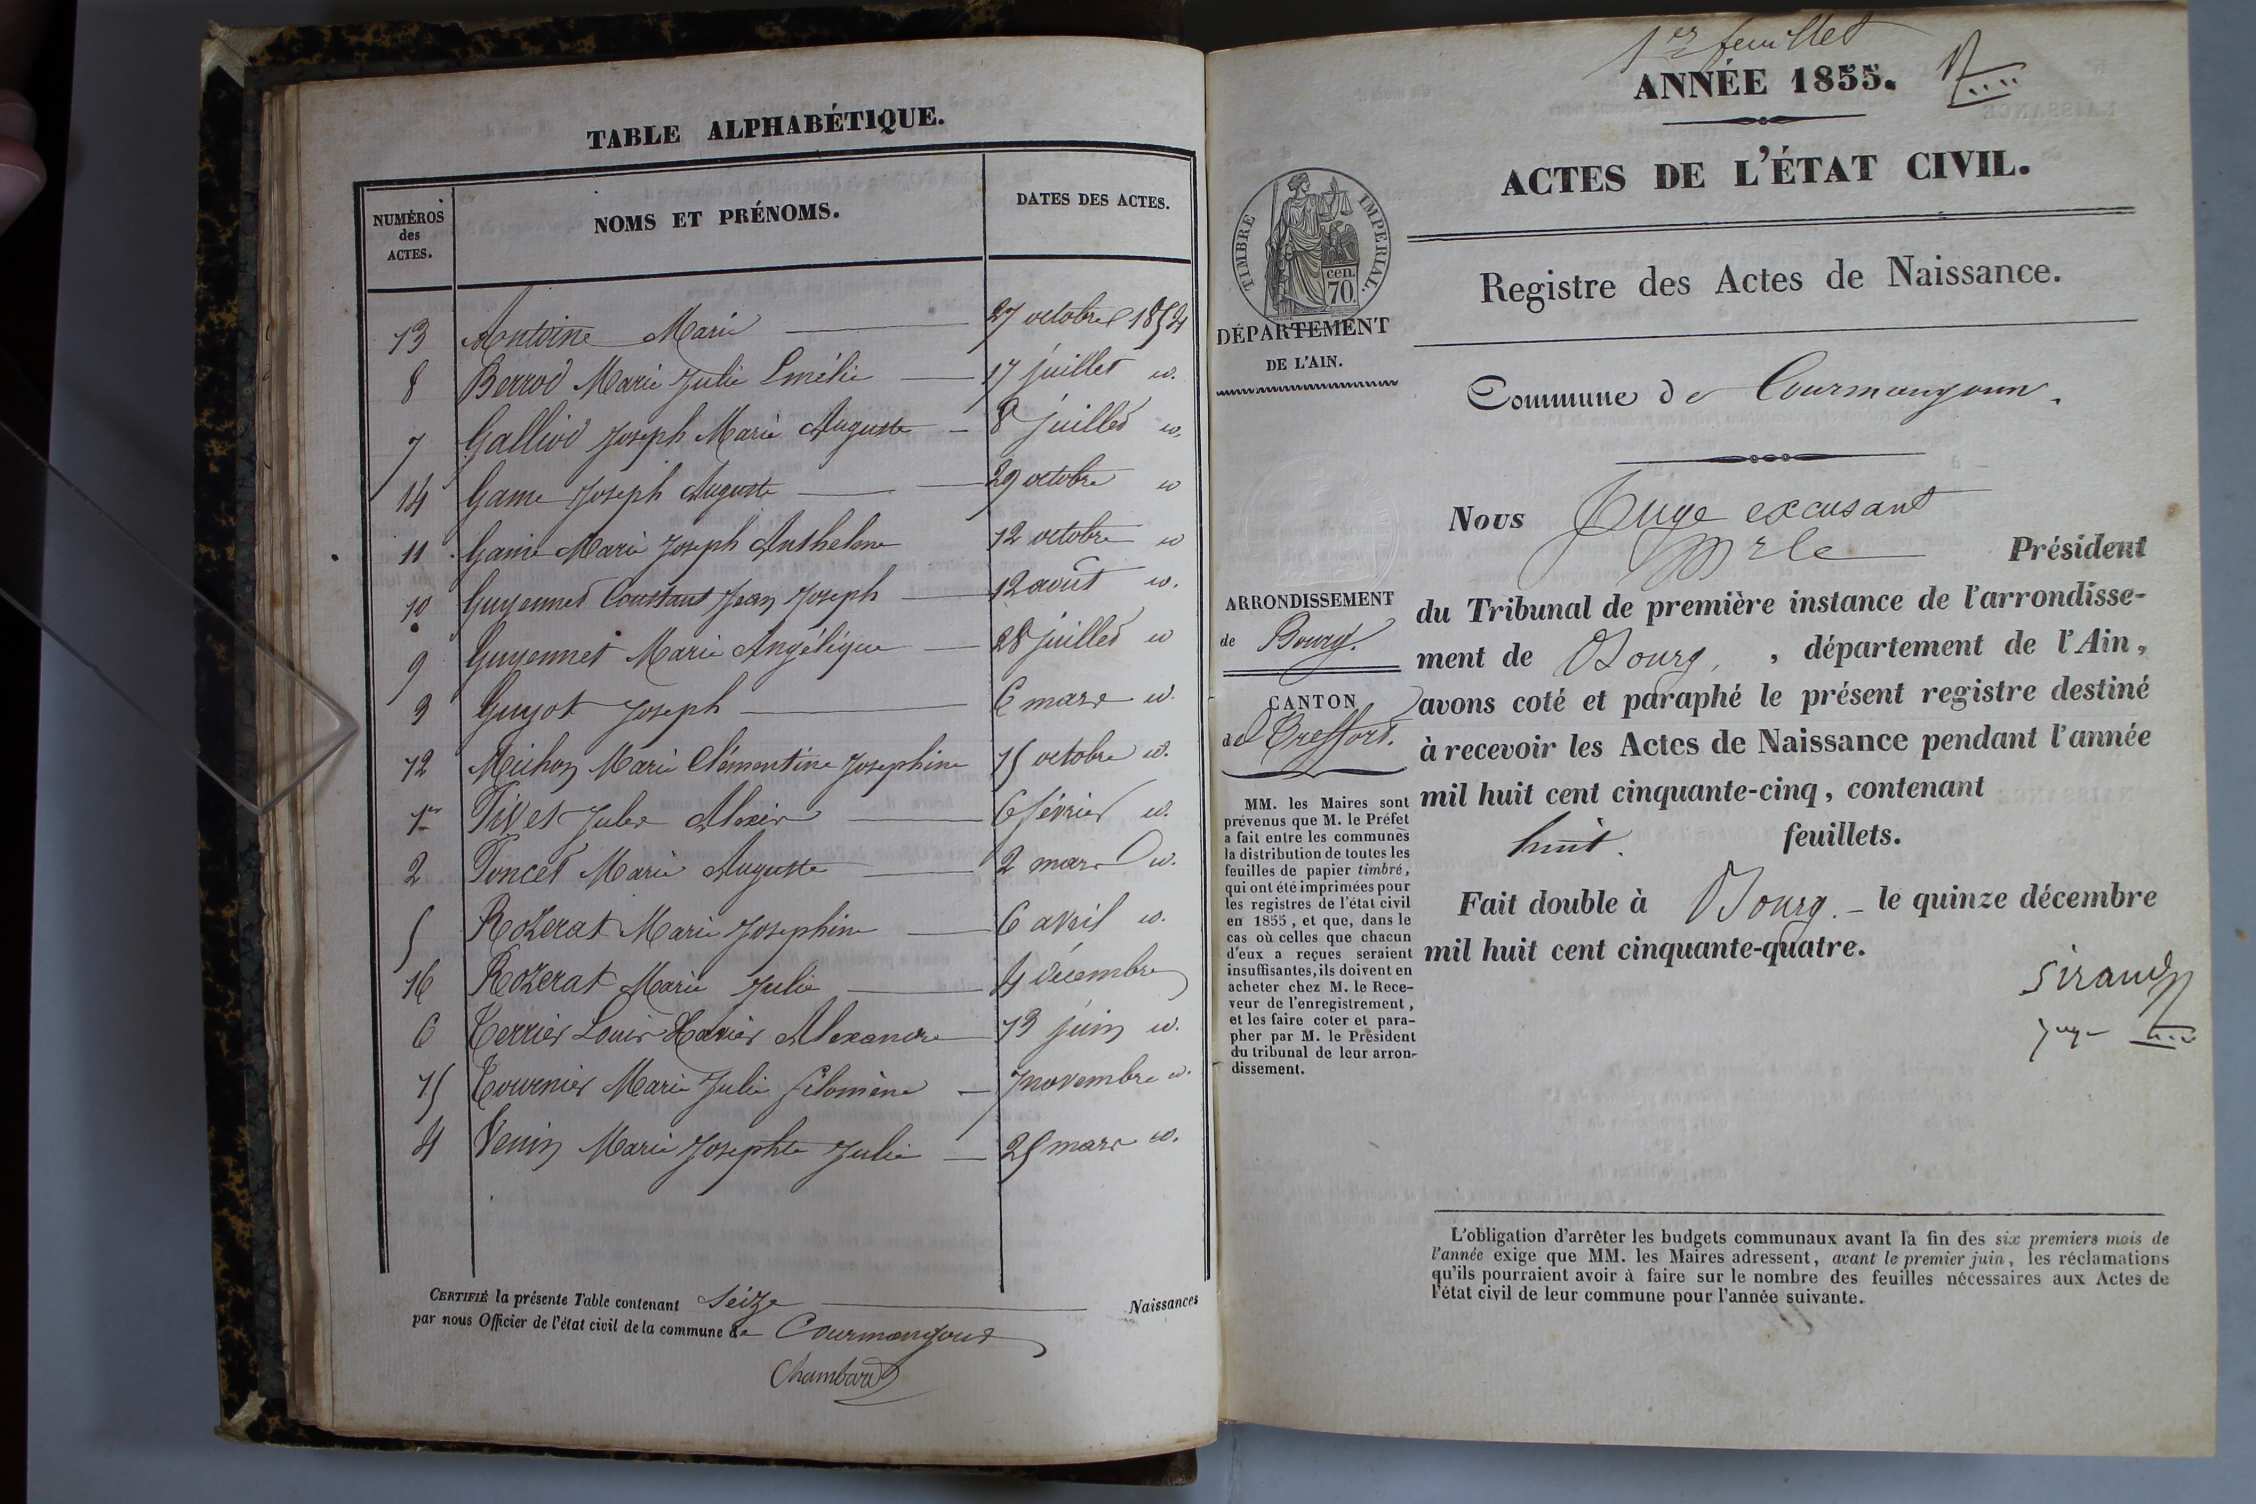 TABLE ALPHABÉTIQUE.
NUMÉROS
des
ACTES.
NOMS ET PRÉNOMS.
DATES DES ACTES.
13 Antoine Marie 27 octobre 1854
8 Berrod Marie Julie Emélie 17 juillet id.
7 Galliod Joseph Marie Auguste 8 juillet id.
14 Game Joseph Auguste 29 octobre id
11 Game Marie Joseph Anthelme 12 octobre id
10 Guyennet Constant Jean Joseph 12 août id.
9 Guyennet Marie Angélique 28 juillet id
3 Guyot Joseph 6 mars id.
12 Michon Marie Clémentine Josephine 15 octobre id.
1er Pivet Jules Alexis 6 février id.
2 Poncet Marie Auguste 2 mars id.
5 Rozerat Marie Josephine 6 avril id.
16 Rozerat Marie Julie 4 décembre
6 Terrier Louis Xavier Alexandre 13 juin id.
15 Tournier Marie Julie filomène 7 novembre id.
4 Venin Marie Josephte Julie 25 mars id.
CERTIFIÉ la présente Table contenant Seize Naissances
par nous Officier de l'état civil de la commune de Courmangoux
Chambard
1er feuillet
ANNÉE 1855.
ACTES DE L'ÉTAT CIVIL.
Registre des Actes de Naissance.
TIMBRE IMPÉRIAL.
cen.
70.
DÉPARTEMENT
DE L'AIN.
Commune de Courmangoux.
ARRONDISSEMENT
de Bourg.
CANTON
de Treffort.
MM. les Maires sont
prévenus que M. le Préfet
a fait entre les communes
la distribution de toutes les
feuilles de papier timbré,
qui ont été imprimées pour
les registres de l'état civil
en 1855, et que, dans le
cas où celles que chacun
d'eux a reçues seraient
insuffisantes, ils doivent en
acheter chez M. le Rece-
veur de l'enregistrement,
et les faire coter et para-
pher par M. le Président
du tribunal de leur arron-
dissement.
Nous Juge excusant
Mr le Président
du Tribunal de première instance de l'arrondisse-
ment de Bourg, , département de l'Ain,
avons coté et paraphé le présent registre destiné
à recevoir les Actes de Naissance pendant l'année
mil huit cent cinquante-cinq, contenant
huit. feuillets.
Fait double à Bourg. le quinze décembre
mil huit cent cinquante-quatre.
Sirand
juge
L'obligation d'arrêter les budgets communaux avant la fin des six premiers mois de
l'année exige que MM. les Maires adressent, avant le premier juin, les réclamations
qu'ils pourraient avoir à faire sur le nombre des feuilles nécessaires aux Actes de
l'état civil de leur commune pour l'année suivante.